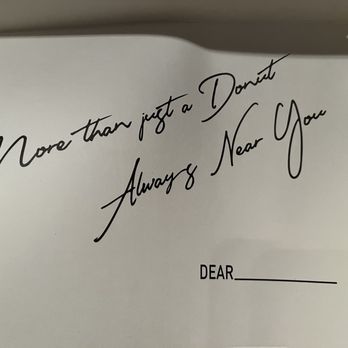 More than just a Donut
Always Near You
DEAR____________